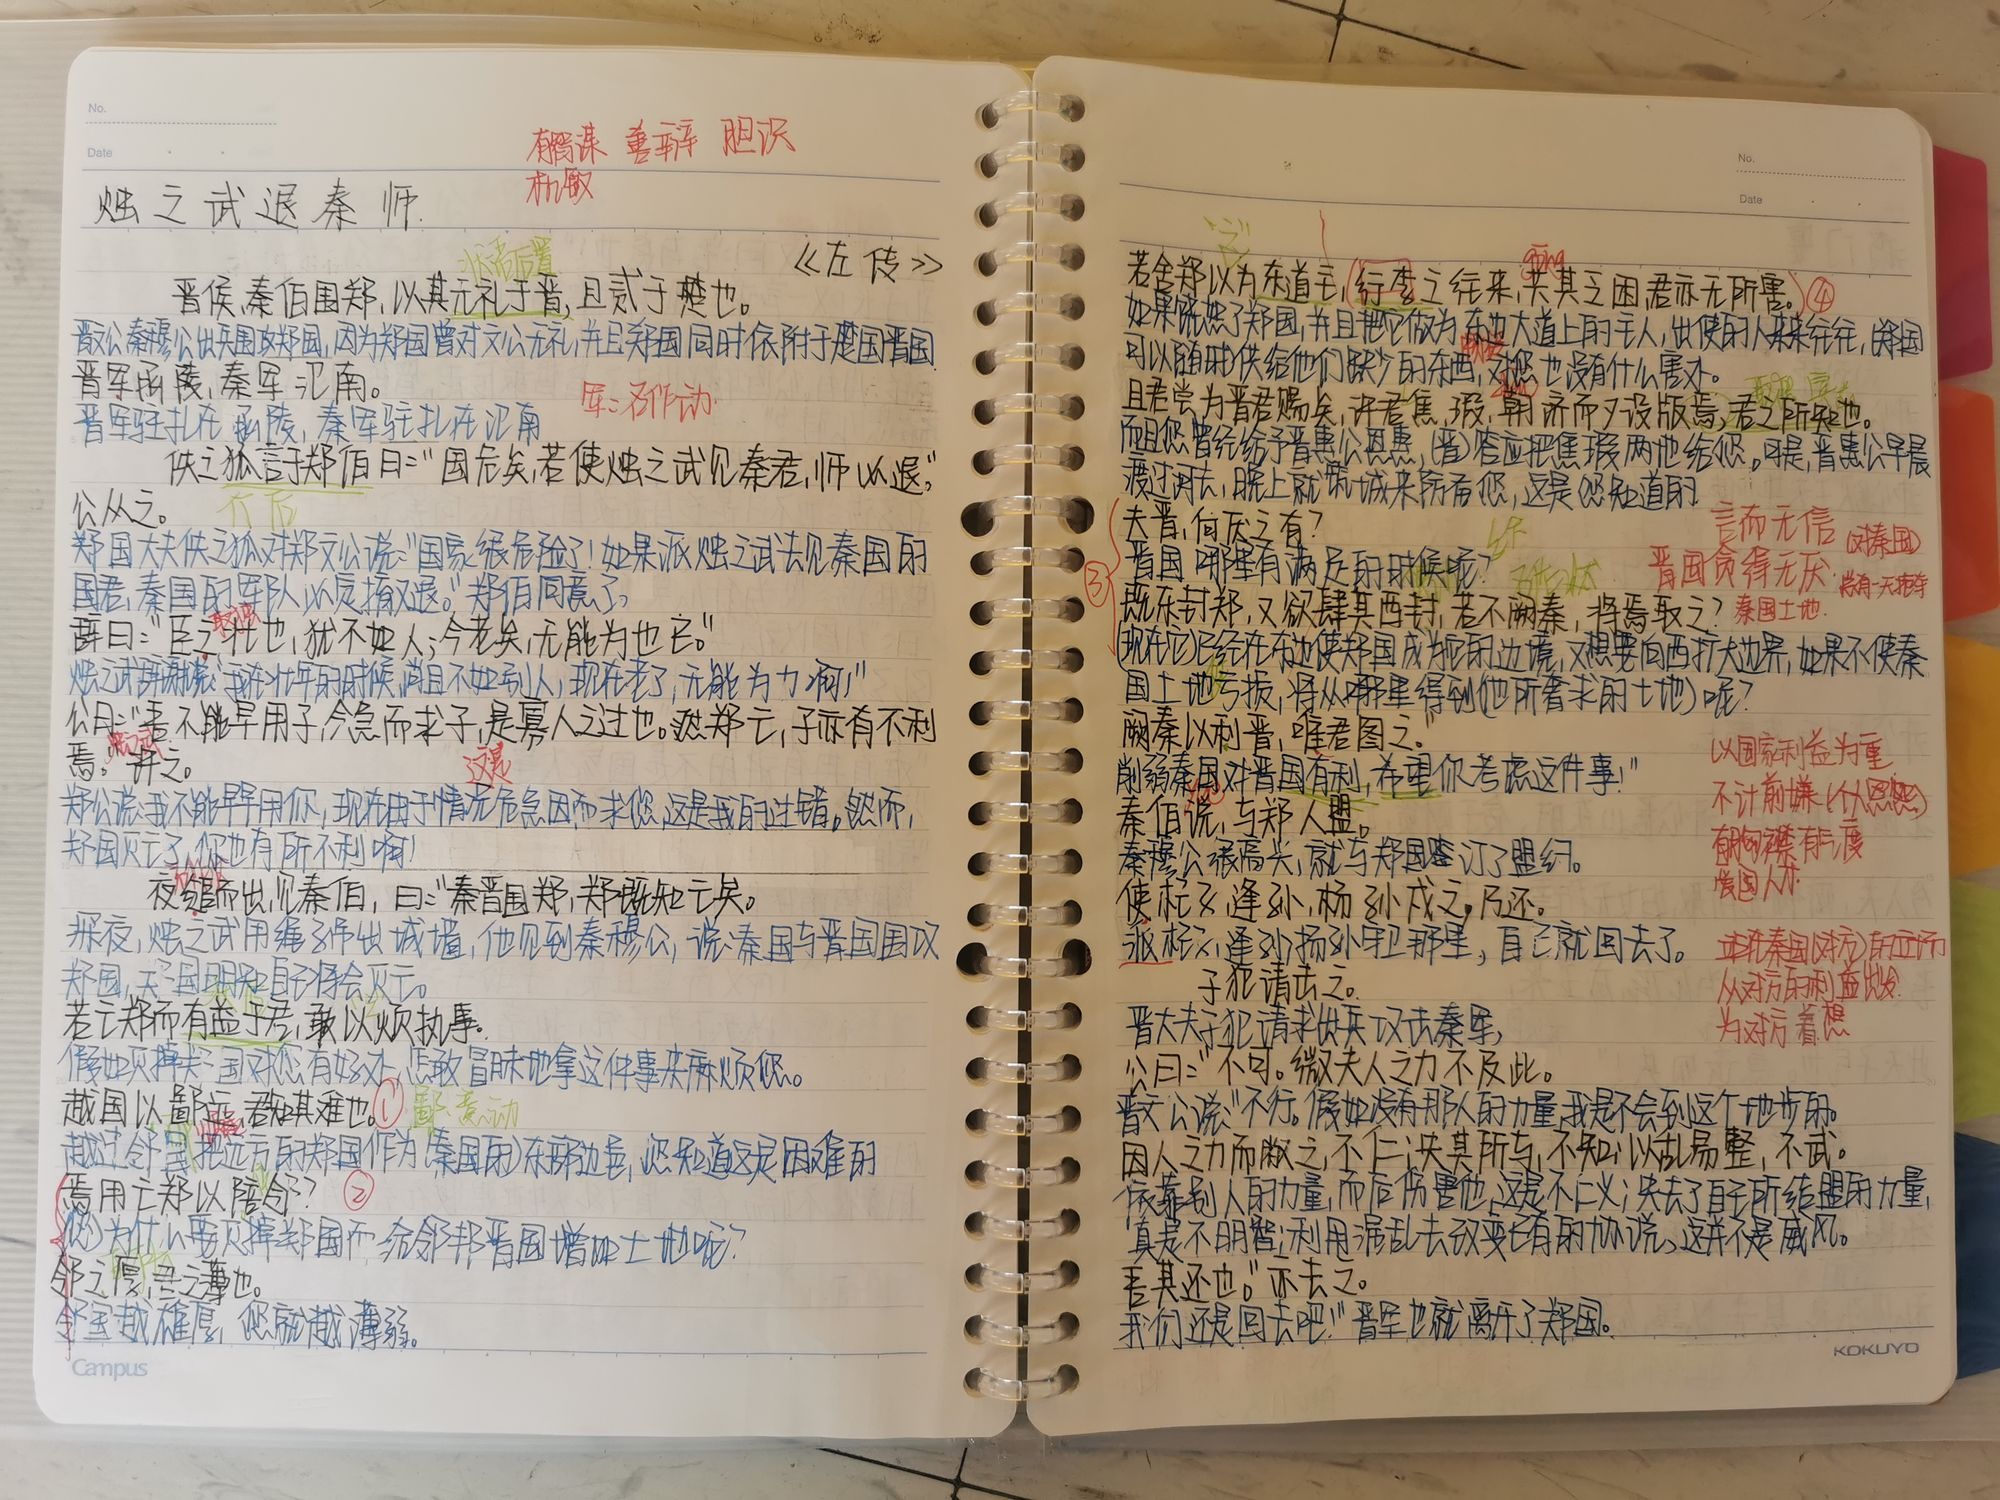 No.
Date
有智谋 善辩 胆识
机敏
烛之武退秦师.
《左传》
状语后置
晋侯、秦伯围郑,以其无礼于晋,且贰于楚也。
晋文公秦穆公出兵围攻郑国,因为郑国曾对文公无礼,并且郑国同时依附于楚国晋国
晋军函陵,秦军氾南。
军:名作动
晋军驻扎在函陵,秦军驻扎在氾南
佚之狐言于郑伯曰:“国危矣,若使烛之武见秦君,师必退。”
公从之。
介后
郑国大夫佚之狐对郑文公说:“国家很危险了!如果派烛之武去见秦国的
国君,秦国的军队必定撤退。”郑伯同意了。
辞曰:“臣之壮也,犹不如人;今老矣,无能为也已。”
烛之武辞谢说:“我在壮年的时候,尚且不如别人,现在老了,无能为力啊!”
公曰:“吾不能早用子,今急而求子,是寡人之过也。然郑亡,子亦有不利
烛之武
焉。”许之。
这是
郑公说:我不能早早用你,现在由于情况危急因而求您,这是我的过错。然而,
郑国灭亡了,你也有所不利啊!
夜缒而出,见秦伯,曰:“秦晋围郑,郑既知亡矣。
深夜,烛之武用绳子吊出城墙,他见到秦穆公,说:秦国与晋国围攻
郑国,关国明知自己将会灭亡。
若亡郑而有益于君,敢以烦执事。
假如灭掉关国对您有好处,怎敢冒昧地拿这件事来麻烦您。
越国以鄙远,君知其难也。①
鄙:意动
越过邻国把远方的郑国作为(秦国的)东部边邑,您知道这是困难的
焉用亡郑以陪邻? ②
(您)为什么要灭掉郑国而给邻邦晋国增加土地呢?
邻之厚,君之薄也。
邻国越雄厚,您就越薄弱。
Campus
No.
Date
gōng
若舍郑以为东道主,行李之往来,共其之困,君亦无所害。④
如果饶恕了郑国,并且把它做为东边大道上的主人,出使的人来来往往,(郑国
可以随时)供给他们缺少的东西,对您也没有什么害处。
且君尝为晋君赐矣,许君焦、瑕,朝济而夕设版焉,君之所知也。
而且您曾经给予晋惠公恩惠,(晋)答应把焦瑕两地给您。可是,晋惠公早晨
渡过河去,晚上就筑城来防备您,这是您知道的
夫晋,何厌之有?
言而无信(对秦国)
晋国哪里有满足的时候呢?
晋国贪得无厌.
③
既东封郑,又欲肆其西封,若不阙秦,将焉取之?
秦国土地.
(现在它)已经在东边使郑国成为它的边境,又想要向西扩大边界,如果不使秦
国土地亏损,将从哪里得到(他所奢求的土地)呢?
阙秦以利晋,唯君图之。”
削弱秦国对晋国有利,希望你考虑这件事!”
以国家利益为重
不计前嫌(个人恩怨)
有胸襟有气度
爱国人才.
秦伯说,与郑人盟。
秦穆公很高兴,就与郑国签订了盟约。
使杞子、逢孙、杨孙戍之,乃还。
派杞子、逢孙扬孙守卫那里,自己就回去了。
站在秦国(对方)的立场
从对方的利益出发.
为对方着想
子犯请击之。
晋大夫子犯请求出兵攻击秦军,
公曰:“不可。微夫人之力不及此。
晋文公说:“不行。假如没有那人的力量,我是不会到这个地步的。
因人之力而敝之,不仁;失其所与,不知;以乱易整,不武。
依靠别人的力量,而后伤害他,这是不仁义;失去了自己所结盟的力量,
真是不明智;利用混乱去改变已有的协议,这并不是威风。
吾其还也。”亦去之。
我们还是回去吧!”晋军也就离开了郑国。
KOKUYO